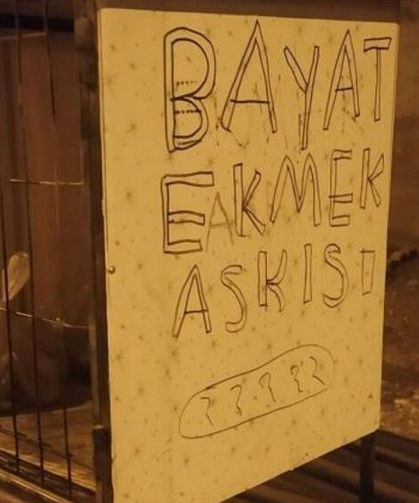 BAYAT
EKMEK
ASKISI
? ? ? ? ?